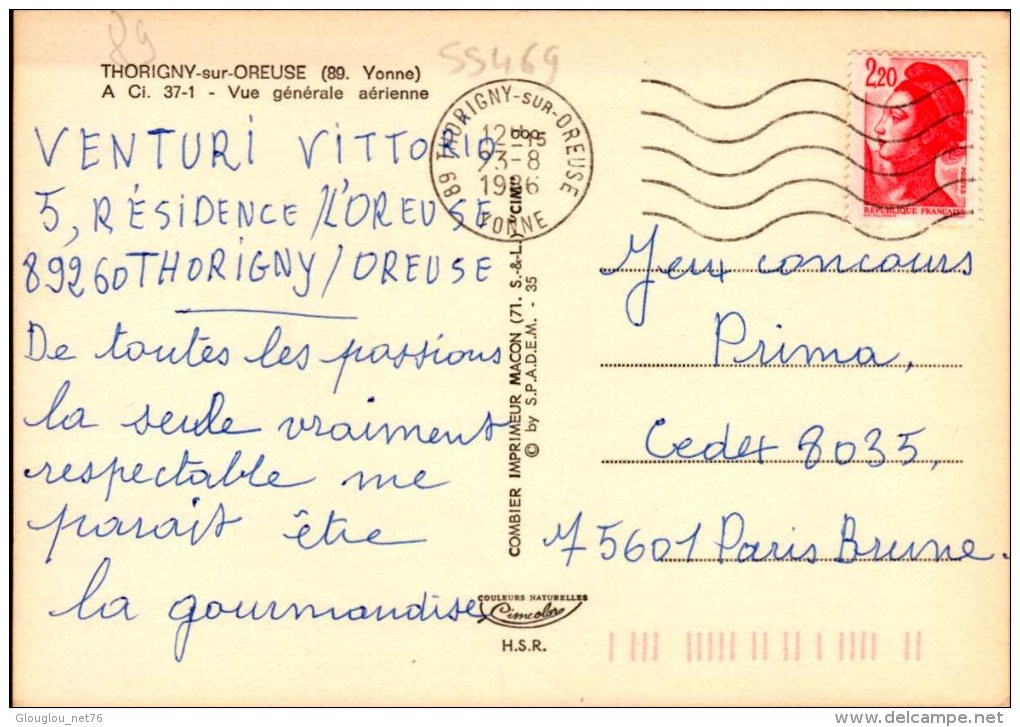 89
55469
THORIGNY-sur-OREUSE (89. Yonne)
A Ci. 37-1 - Vue générale aérienne
VENTURI VITTORIO
5, RÉSIDENCE/L'OREUSE
89260 THORIGNY/OREUSE
De toutes les passions
la seule vraiment
respectable me
parait être
la gourmandise
89 THORIGNY-SUR-OREUSE
12H15
23-8
1986
YONNE
COMBIER IMPRIMEUR MACON (71. S.-&-L.) "CIM"
© by S.P.A.D.E.M. - 35
COULEURS NATURELLES
Cimcolor
H.S.R.
2,20
POSTES
REPUBLIQUE FRANÇAISE
Jeux concours
Prima,
Cedex 8035,
75601 Paris Brune.
Glouglou_net76
delcampe.net